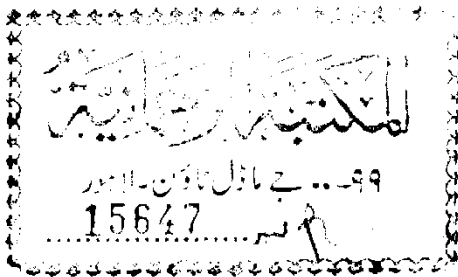 المكتبة الرحمانية
۹۹۔۔۔ جے ماڈل ٹاؤن۔ لاہور
نمبر 15647